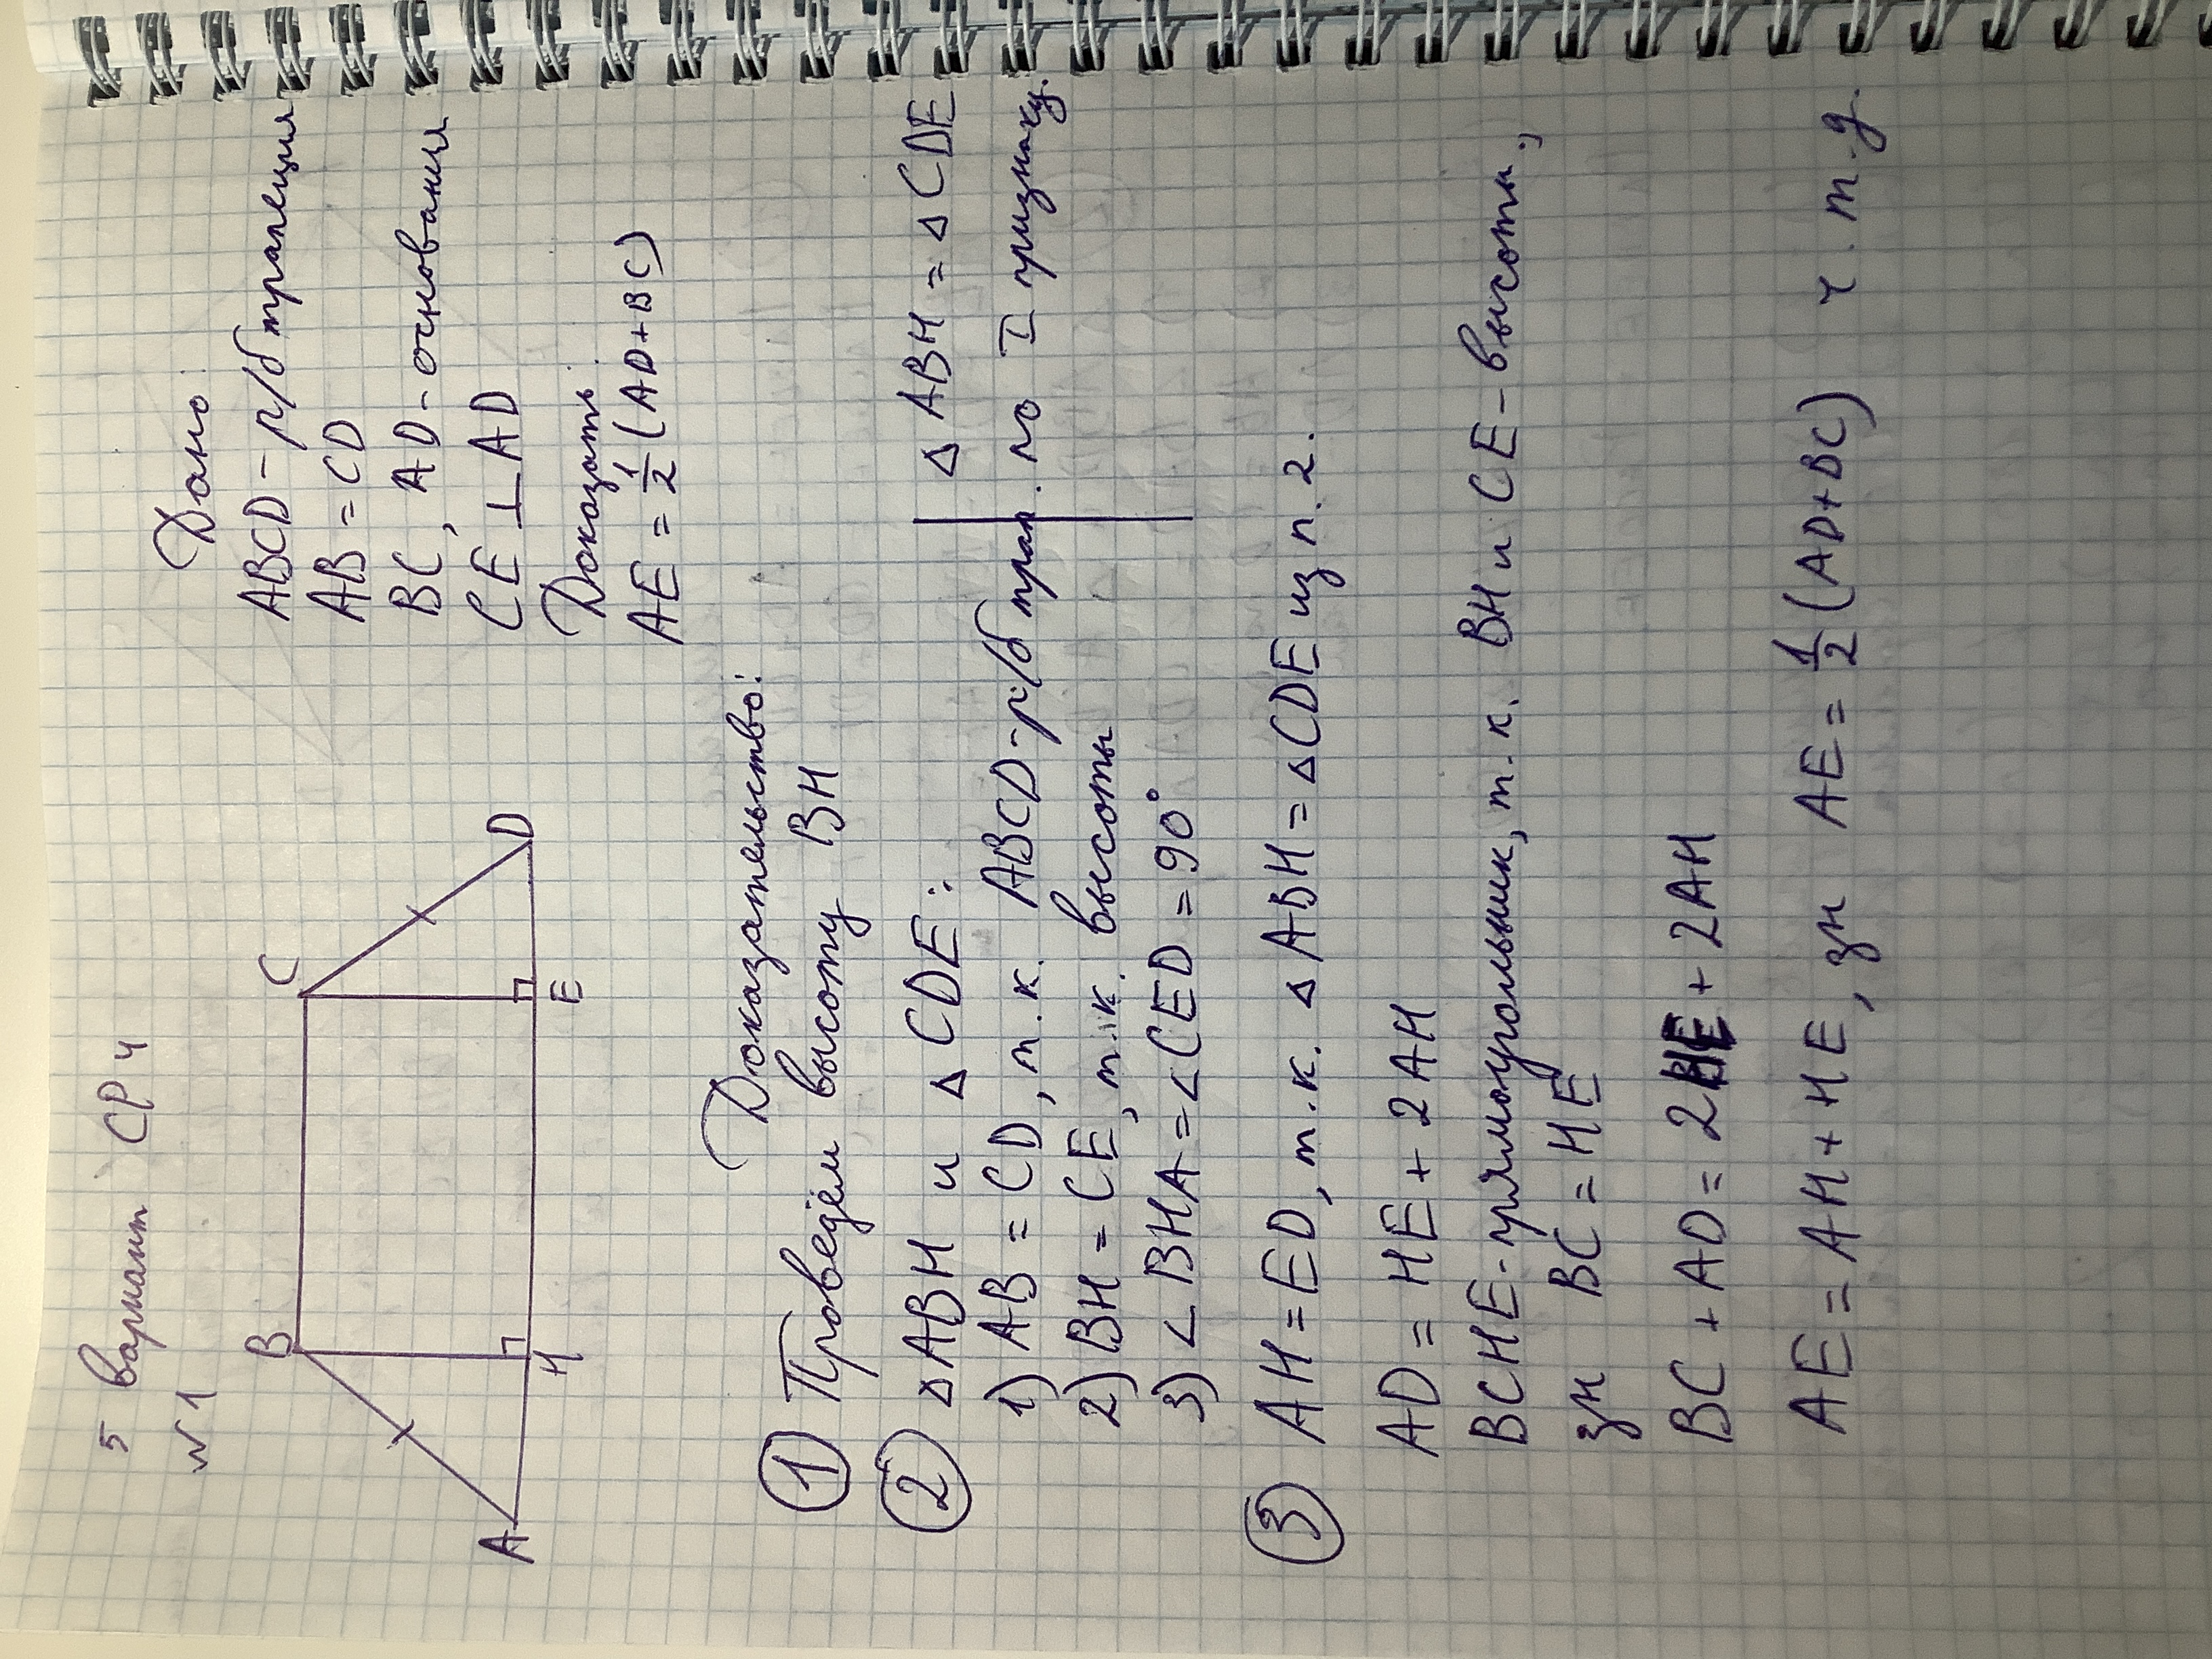 5 вариант СР 4
№1
B
C
A
H
E
D
Дано:
ABCD - р/б трапеция
AB = CD
BC, AD - основания
CE ⊥ AD
Доказать:
AE = 1/2 (AD+BC)
Доказательство:
① Проведём высоту BH
② △ABH и △CDE:
1) AB = CD, т.к. ABCD - р/б трап.
2) BH = CE, т.к. высоты
3) ∠BHA = ∠CED = 90°
△ABH = △CDE
по I признаку.
③ AH = ED, т.к. △ABH = △CDE из п. 2.
AD = HE + 2AH
BCHE - прямоугольник, т.к. BH и CE - высоты,
зн BC = HE
BC + AD = 2HE + 2AH
AE = AH + HE, зн AE = 1/2 (AD+BC) ч.т.д.